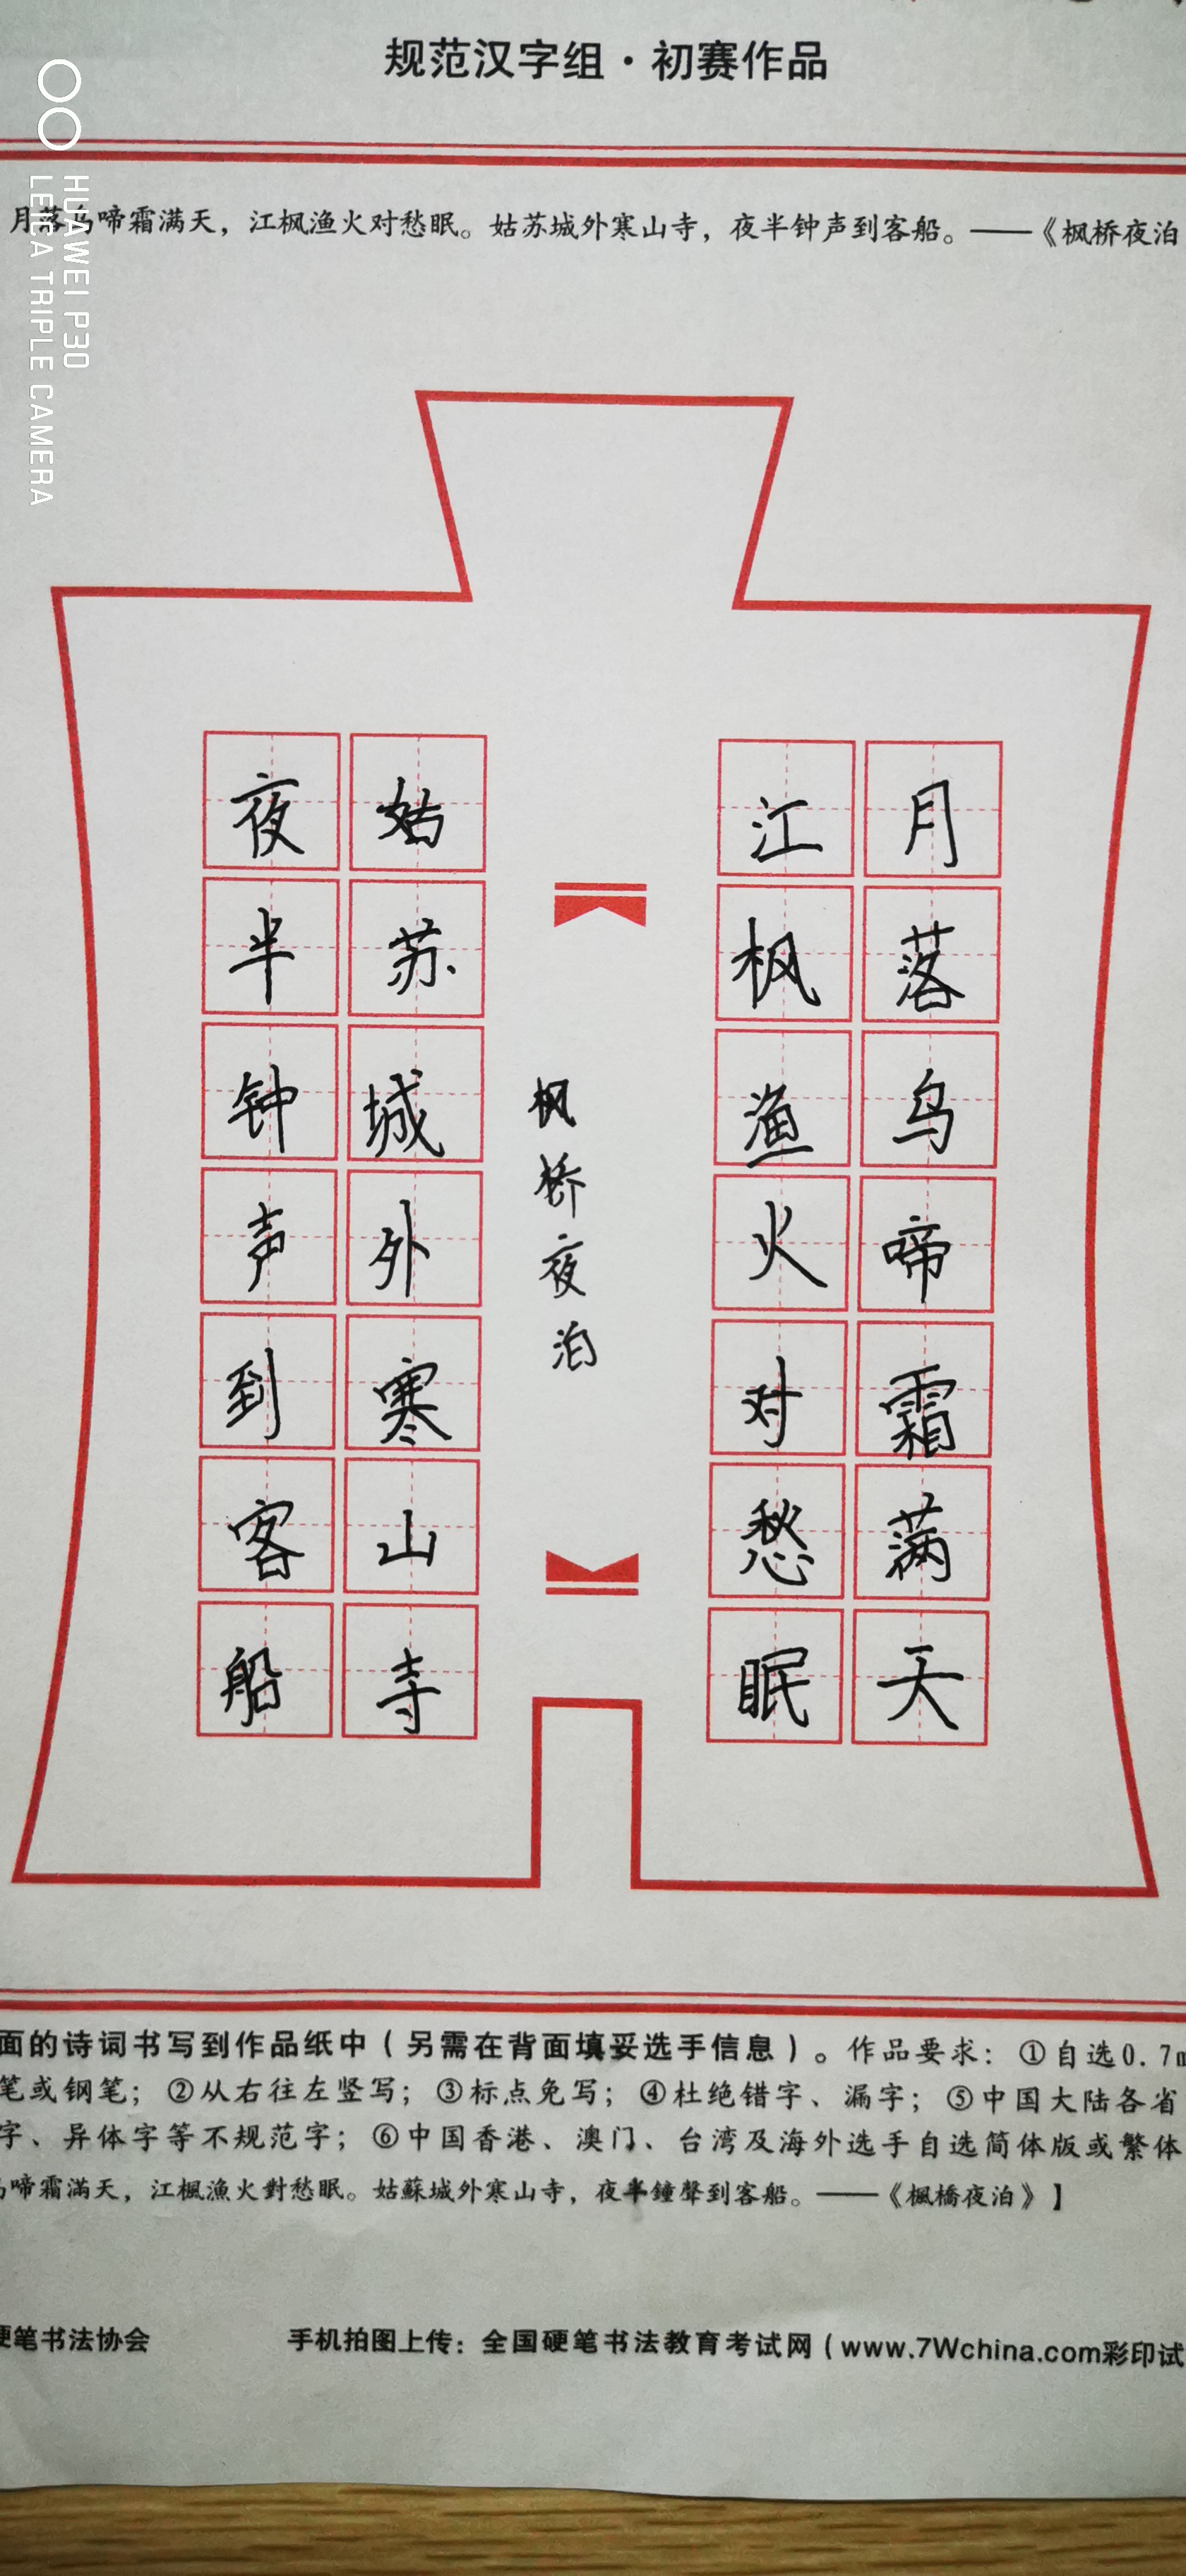 规范汉字组·初赛作品
HUAWEI P30
LEICA TRIPLE CAMERA
月落乌啼霜满天，江枫渔火对愁眠。姑苏城外寒山寺，夜半钟声到客船。——《枫桥夜泊
月落乌啼霜满天
江枫渔火对愁眠
枫桥夜泊
姑苏城外寒山寺
夜半钟声到客船
面的诗词书写到作品纸中（另需在背面填妥选手信息）。作品要求：①自选0.7m
笔或钢笔；②从右往左竖写；③标点免写；④杜绝错字、漏字；⑤中国大陆各省
字、异体字等不规范字；⑥中国香港、澳门、台湾及海外选手自选简体版或繁体
啼霜滿天，江楓漁火對愁眠。姑蘇城外寒山寺，夜半鐘聲到客船。——《楓橋夜泊》】
硬笔书法协会
手机拍图上传：全国硬笔书法教育考试网（www.7Wchina.com彩印试